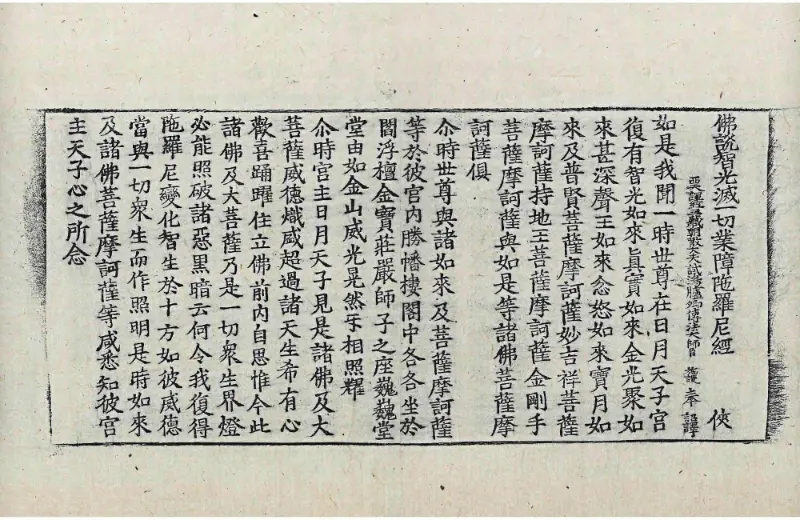 佛說智光滅一切業障陁羅尼經 俠
三藏朝散大夫試鴻臚卿傳法大師臣 護 奉 詔譯
如是我聞一時世尊在日月天子宮
復有智光如來眞實如來金光聚如
來甚深聲王如來忿怒如來寶月如
來及普賢菩薩摩訶薩妙吉祥菩薩
摩訶薩持地王菩薩摩訶薩金剛手
菩薩摩訶薩與如是等諸佛菩薩摩
訶薩俱
尒時世尊與諸如來及菩薩摩訶薩
等於彼宮內勝幡樓閣中各各坐於
閻浮檀金寶莊嚴師子之座巍巍堂
堂由如金山威光晃然㸦相照耀
尒時宮主日月天子見是諸佛及大
菩薩威德熾盛超過諸天生希有心
歡喜踊躍住立佛前內自思惟今此
諸佛及大菩薩乃是一切衆生界燈
必能照破諸惡黑暗云何令我復得
陁羅尼變化智生於十方如彼威德
當與一切衆生而作照明是時如來
及諸佛菩薩摩訶薩等咸悉知彼宮
主天子心之所念